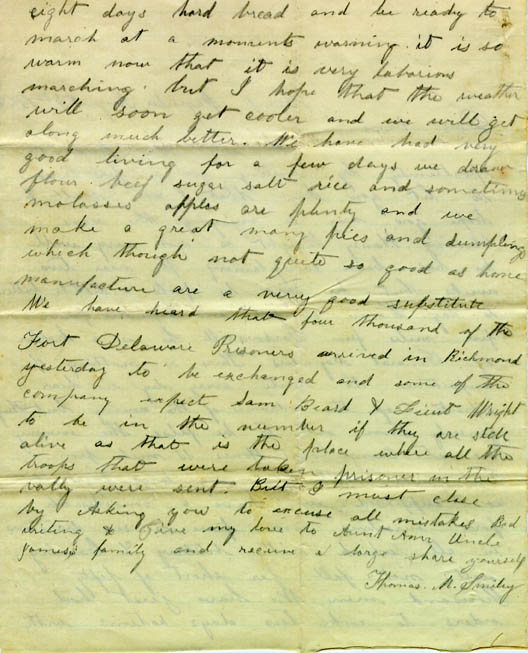 eight days hard bread and be ready to
march at a moments warning. it is so
warm now that it is very laborious
marching. but I hope that the weather
will soon get cooler and we will get
along much better. We have had very
good living for a few days we draw
flour. beef sugar salt rice and sometims
molasses apples are plenty and we
make a great many pies and dumplings
which though not quite so good as home
manufacture are a very good substitute
We have heard that four thousand of the
Fort Delaware Prisoners arrived in Richmond
yesterday to be exchanged and some of the
company expect Sam Beard & Lieut Wright
to be in the number if they are still
alive as that is the place where all the
troops that were taken prisoner in the
vally were sent. But I must close
by Asking you to excuse all mistakes Bad
writing & Give my love to Aunt Ann Uncle
James family and receive a large share yourself
Thomas. M. Smiley